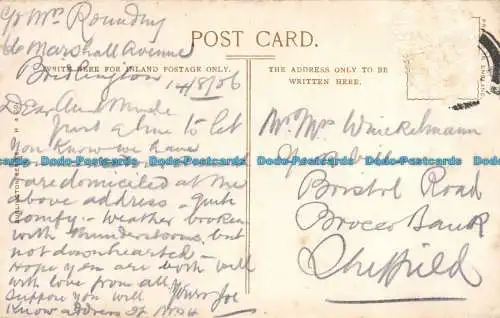 c/o Mrs Rounding
66 Marshall Avenue
Bridlington
14/8/06
POST CARD.
WRITE HERE FOR INLAND POSTAGE ONLY.
THE ADDRESS ONLY TO BE
WRITTEN HERE.
Dear Aunt Minnie
Just a line to let
you know we have
are domiciled at the
above address - quite
comfy - weather broken
with thunderstorms, but
not downhearted -
Hope you are both well
with love from all
Yours Joe
Suppose you will
know address of No 4
Mr Mrs Winckelmann
Bristol Road
Brocco Bank
Sheffield
Dodo-Postcards Dodo-Postcards Dodo-Postcards Dodo-Postcards
Dodo-Postcards Dodo-Postcards Dodo-Postcards Dodo-Postcards